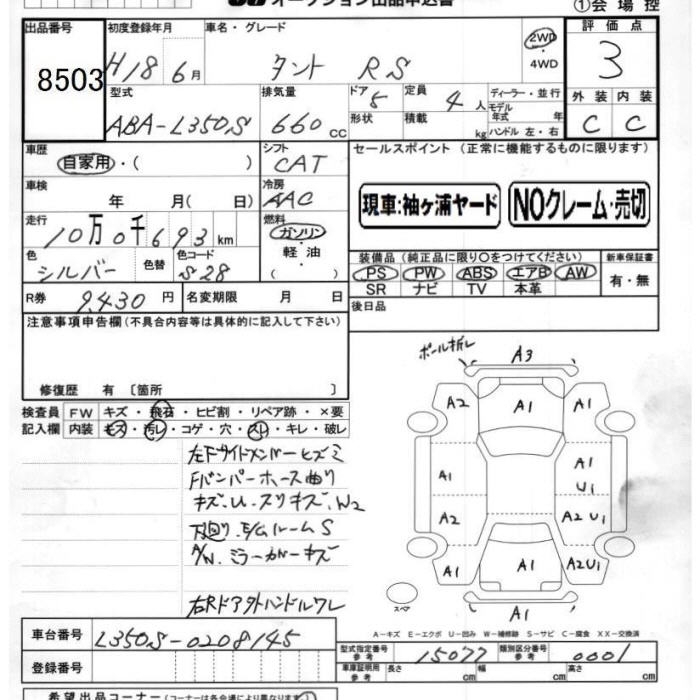 オークション出品申込書
①会場控
出品番号 初度登録年月 車名・グレード 2WD 評価点
8503 H18 6月 タント RS ・4WD 3
型式 排気量 ドア 5 定員 4人 ディーラー・並行 外装 内装
ABA-L350S 660 cc 形状 積載 kg モデル年式 年 ハンドル 左・右 C C
車歴 自家用・( ) シフト CAT セールスポイント (正常に機能するものに限ります)
車検 年 月( 日) 冷房 AAC 現車:袖ヶ浦ヤード NOクレーム・売切
走行 10万0千693km 燃料 ガソリン・軽油 ( ・ )
色 シルバー 色替 色コード S28 装備品 (純正品に限り○をつけてください) 新車保証書
PS PW ABS エアB AW 有・無
SR ナビ TV 本革
R券 9,430円 名変期限 月 日 後日品
注意事項申告欄(不具合内容等は具体的に記入して下さい)
修復歴 有 〔箇所 〕
検査員 FW キズ・飛石・ヒビ割・リペア跡・×要
記入欄 内装 キズ・汚レ・コゲ・穴・スレ・キレ・破レ
左下サイドメンバーヒズミ
Fバンパーホース曲り
キズ、U、スリキズ、W2
下廻り、E/GルームS
A/W、ミラーカバーキズ
右Rドア外ハンドルワレ
ポール折レ A3
A2 A1 A1
A1 A1 U1
A2 A2 U1
A1 A1 A2U1
スペア A1
A-キズ E-エクボ U-凹み W-補修跡 S-サビ C-腐食 XX-交換済
車台番号 L350S-0208145
登録番号
型式指定番号 参考 15077 類別区分番号 参考 0001
車庫証明用 参考 長さ cm 幅 cm 高さ cm
希望出品コーナー(コーナーは各会場により異なります)